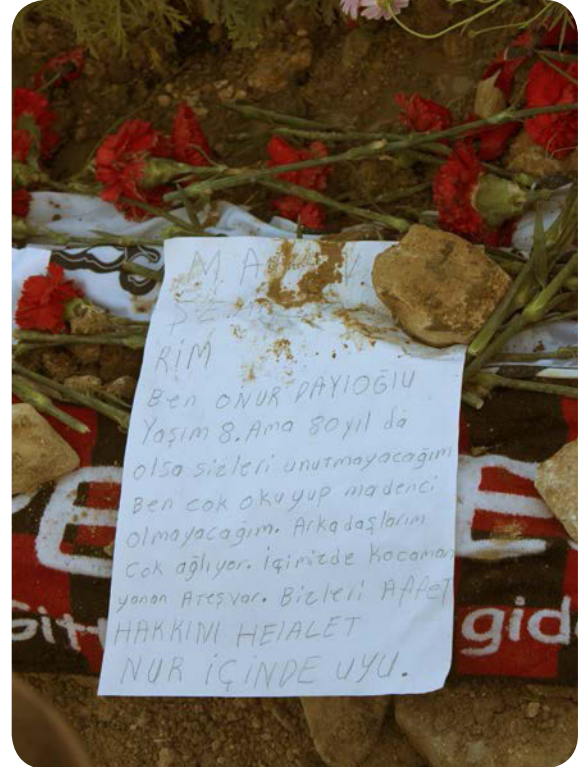 RİM
Ben ONUR DAYIOĞLU
Yaşım 8. Ama 80 yıl da
olsa sizleri unutmayacağım
Ben cok okuyup madenci
olmayacağım. Arkadaşlarım
Cok ağlıyor. İçimizde Kocaman
yanan Ateş var. Bizleri Affet
HAKKINI HElALET
NUR İÇİNDE UYU.
gid